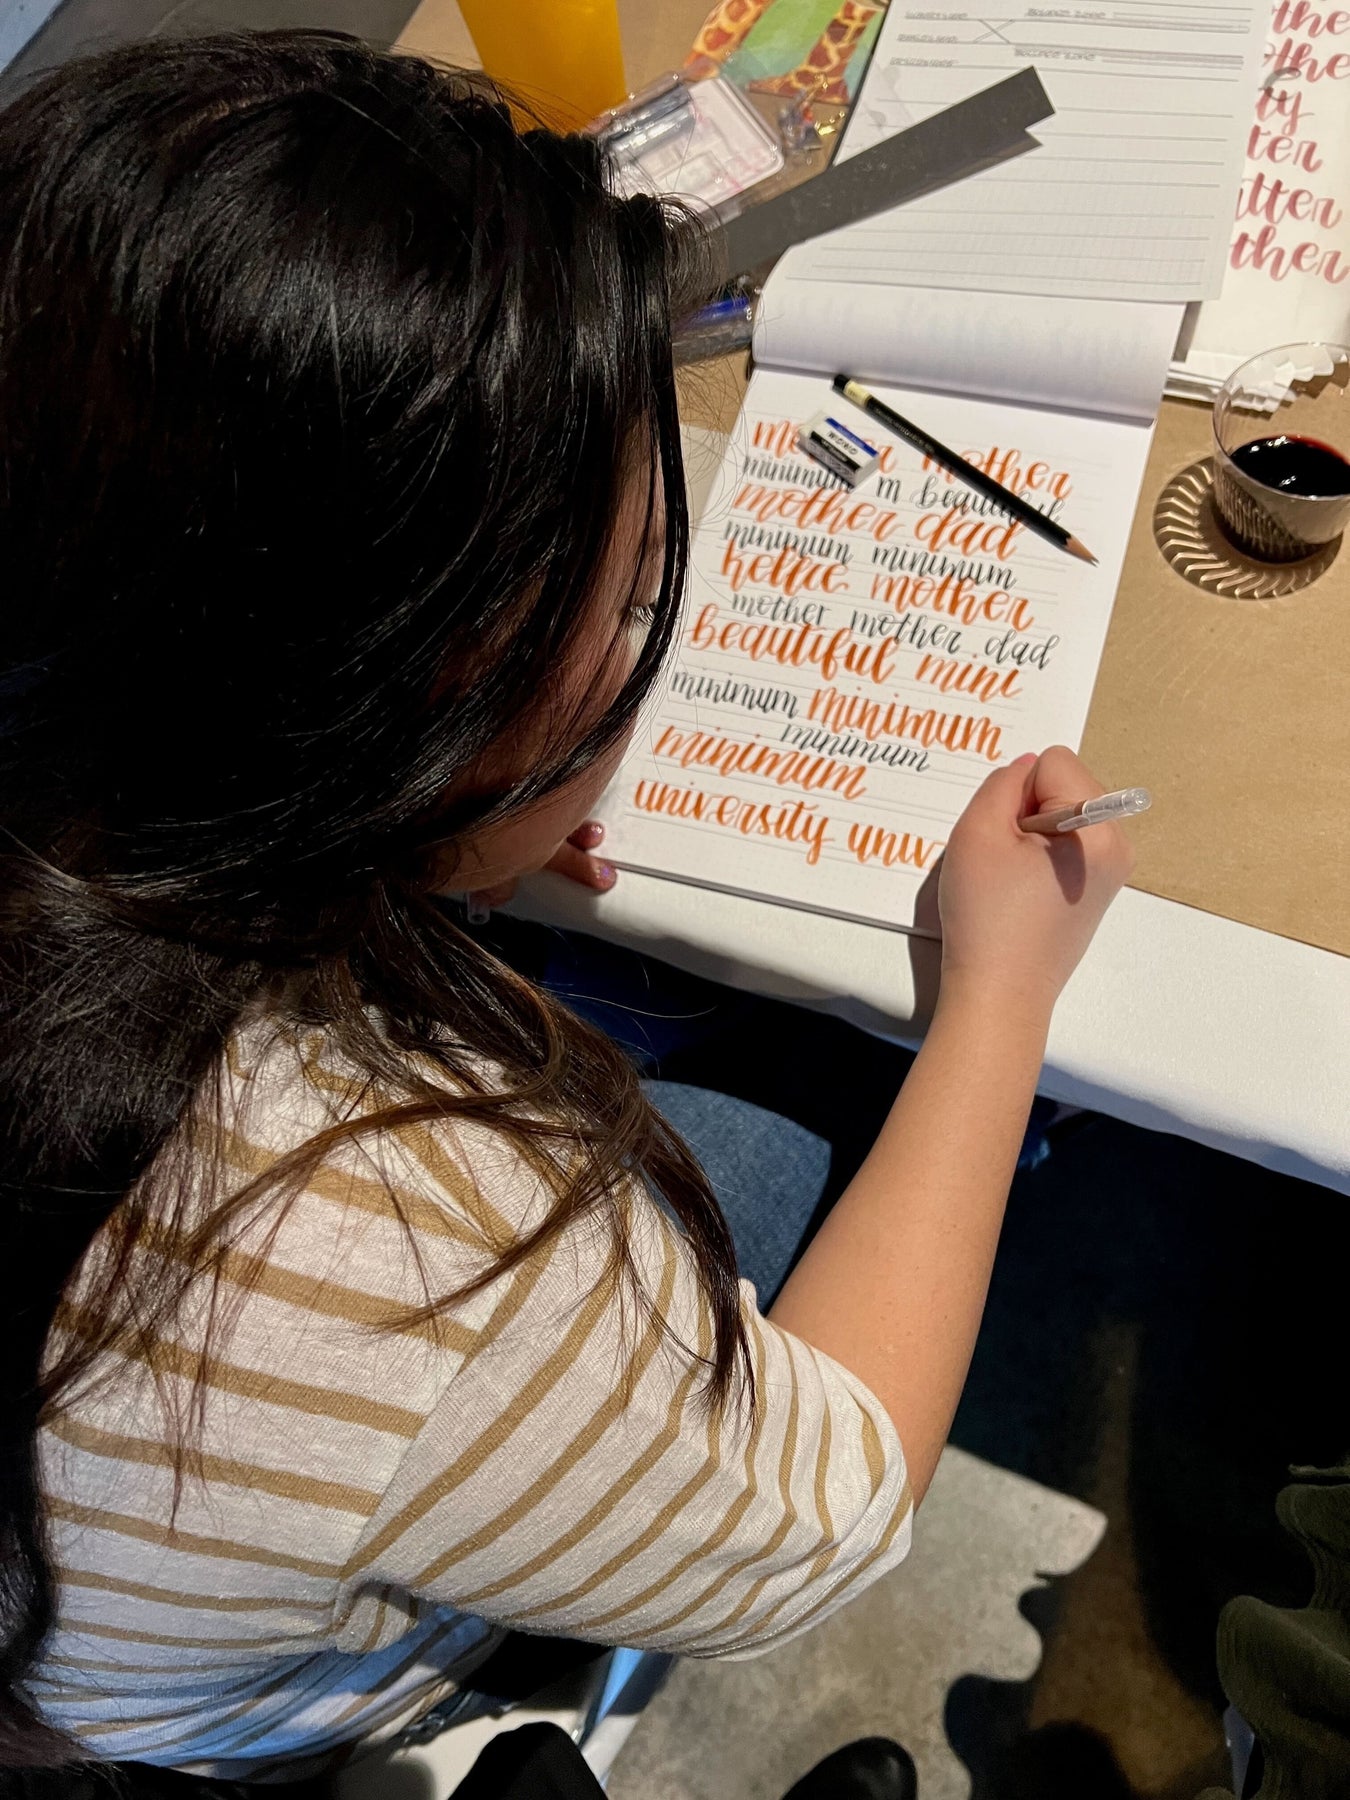 mother
minimum m beautiful
mother dad
minimum minimum
hellie mother
mother mother dad
beautiful mini
minimum minimum
minimum
minimum
university univ
MONO
the
the
ty
ter
tter
ther